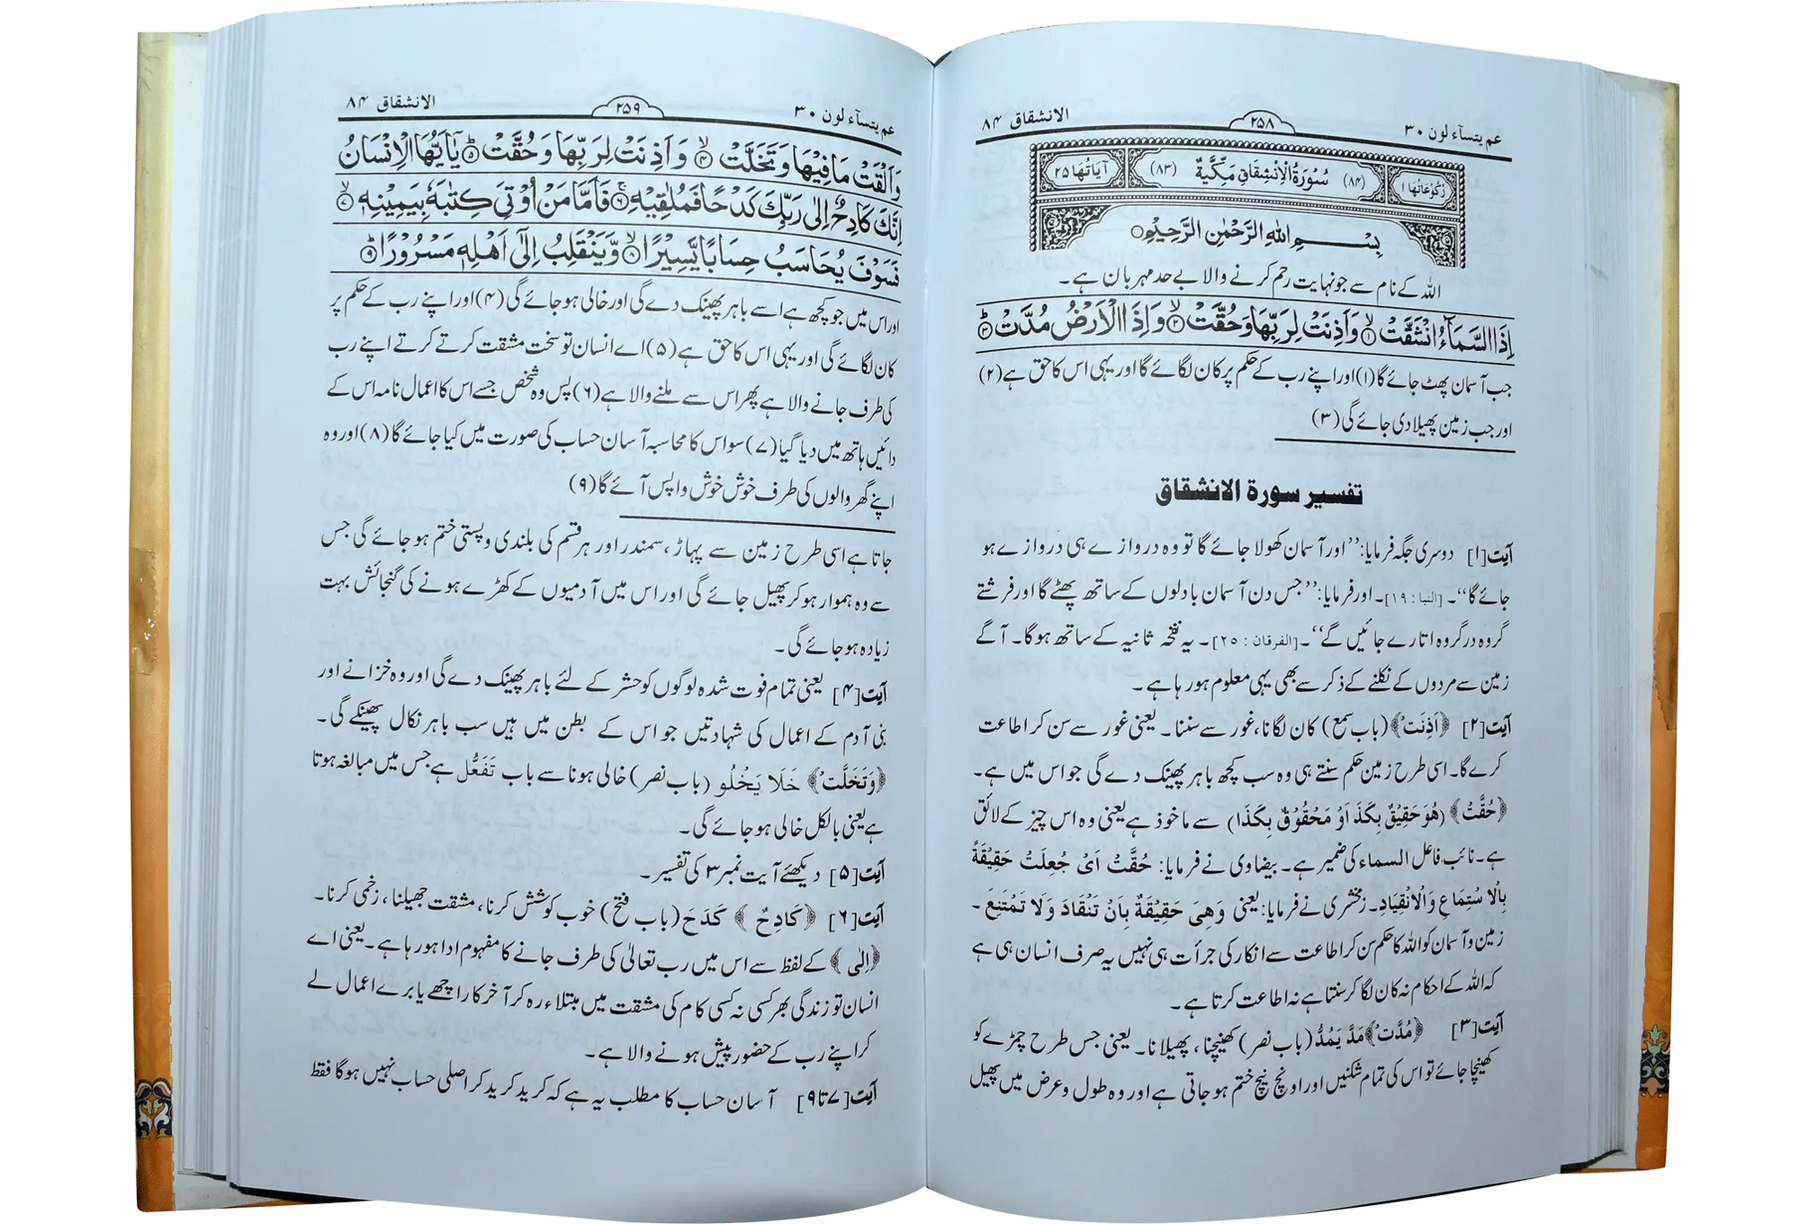 عم یتسآءلون ۳۰ ۲۵۸ الانشقاق ۸۴
رُکُوعَاتُہَا ۱ (۸۴) سُوْرَۃُ الْاِنْشِقَاقِ مَکِّیَّۃٌ (۸۳) اٰیَاتُہَا ۲۵
بِسْمِ اللّٰهِ الرَّحْمٰنِ الرَّحِيْمِ
اللہ کے نام سے جو نہایت رحم کرنے والا بے حد مہربان ہے۔
اِذَا السَّمَآءُ انْشَقَّتْ ۙ۱ وَاَذِنَتْ لِرَبِّهَا وَحُقَّتْ ۙ۲ وَاِذَا الْاَرْضُ مُدَّتْ ۙ۳
جب آسمان پھٹ جائے گا (۱) اور اپنے رب کے حکم پر کان لگائے گا اور یہی اس کا حق ہے (۲)
اور جب زمین پھیلا دی جائے گی (۳)
تفسیر سورۃ الانشقاق
آیت[۱] دوسری جگہ فرمایا: ”اور آسمان کھولا جائے گا تو وہ دروازے ہی دروازے ہو
جائے گا“۔ [النبا: ۱۹]۔ اور فرمایا: ”جس دن آسمان بادلوں کے ساتھ پھٹے گا اور فرشتے
گروہ در گروہ اتارے جائیں گے“۔ [الفرقان: ۲۵]۔ یہ نفخہ ثانیہ کے ساتھ ہوگا۔ آگے
زمین سے مردوں کے نکلنے کے ذکر سے بھی یہی معلوم ہو رہا ہے۔
آیت[۲] ﴿اَذِنَتْ﴾ (باب سمع) کان لگانا، غور سے سننا۔ یعنی غور سے سن کر اطاعت
کرے گا۔ اسی طرح زمین حکم سنتے ہی وہ سب کچھ باہر پھینک دے گی جو اس میں ہے۔
﴿حُقَّتْ﴾ (هُوَ حَقِيْقٌ بِكَذَا اَوْ مَحْقُوْقٌ بِكَذَا) سے ماخوذ ہے یعنی وہ اس چیز کے لائق
ہے۔ نائب فاعل السماء کی ضمیر ہے۔ بیضاوی نے فرمایا: حُقَّتْ اَيْ جُعِلَتْ حَقِيْقَةً
بِالْاِسْتِمَاعِ وَالْاِنْقِيَادِ۔ زمخشری نے فرمایا: یعنی وَهِيَ حَقِيْقَةٌ بِاَنْ تَنْقَادَ وَلَا تَمْتَنِعَ۔
زمین و آسمان کو اللہ کا حکم سن کر اطاعت سے انکار کی جرأت ہی نہیں یہ صرف انسان ہی ہے
کہ اللہ کے احکام نہ کان لگا کر سنتا ہے نہ اطاعت کرتا ہے۔
آیت[۳] ﴿مُدَّتْ﴾ مَدَّ يَمُدُّ (باب نصر) کھینچنا، پھیلانا۔ یعنی جس طرح چمڑے کو
کھینچا جائے تو اس کی تمام شکنیں اور اونچ نیچ ختم ہو جاتی ہے اور وہ طول و عرض میں پھیل
عم یتسآءلون ۳۰ ۲۵۹ الانشقاق ۸۴
وَاَلْقَتْ مَا فِيْهَا وَتَخَلَّتْ ۙ۴ وَاَذِنَتْ لِرَبِّهَا وَحُقَّتْ ؕ۵ يٰۤاَيُّهَا الْاِنْسَانُ
اِنَّكَ كَادِحٌ اِلٰى رَبِّكَ كَدْحًا فَمُلٰقِيْهِ ۚ۶ فَاَمَّا مَنْ اُوْتِيَ كِتٰبَهٗ بِيَمِيْنِهٖ ۙ۷
فَسَوْفَ يُحَاسَبُ حِسَابًا يَّسِيْرًا ۙ۸ وَّيَنْقَلِبُ اِلٰۤى اَهْلِهٖ مَسْرُوْرًا ؕ۹
اور اس میں جو کچھ ہے اسے باہر پھینک دے گی اور خالی ہو جائے گی (۴) اور اپنے رب کے حکم پر
کان لگائے گی اور یہی اس کا حق ہے (۵) اے انسان تو سخت مشقت کرتے کرتے اپنے رب
کی طرف جانے والا ہے پھر اس سے ملنے والا ہے (۶) پس وہ شخص جسے اس کا اعمال نامہ اس کے
دائیں ہاتھ میں دیا گیا (۷) سو اس کا محاسبہ آسان حساب کی صورت میں کیا جائے گا (۸) اور وہ
اپنے گھر والوں کی طرف خوش خوش واپس آئے گا (۹)
جاتا ہے اسی طرح زمین سے پہاڑ، سمندر اور ہر قسم کی بلندی و پستی ختم ہو جائے گی جس
سے وہ ہموار ہو کر پھیل جائے گی اور اس میں آدمیوں کے کھڑے ہونے کی گنجائش بہت
زیادہ ہو جائے گی۔
آیت[۴] یعنی تمام فوت شدہ لوگوں کو حشر کے لئے باہر پھینک دے گی اور وہ خزانے اور
بنی آدم کے اعمال کی شہادتیں جو اس کے بطن میں ہیں سب باہر نکال پھینکے گی۔
﴿وَتَخَلَّتْ﴾ خَلَا يَخْلُو (باب نصر) خالی ہونا سے باب تَفَعُّل ہے جس میں مبالغہ ہوتا
ہے یعنی بالکل خالی ہو جائے گی۔
آیت[۵] دیکھئے آیت نمبر ۳ کی تفسیر۔
آیت[۶] ﴿كَادِحٌ﴾ كَدَحَ (باب فتح) خوب کوشش کرنا، مشقت جھیلنا، زخمی کرنا۔
﴿اِلٰى﴾ کے لفظ سے اس میں رب تعالیٰ کی طرف جانے کا مفہوم ادا ہو رہا ہے۔ یعنی اے
انسان تو زندگی بھر کسی نہ کسی کام کی مشقت میں مبتلاء رہ کر آخر کار اچھے یا برے اعمال لے
کر اپنے رب کے حضور پیش ہونے والا ہے۔
آیت[۷ تا ۹] آسان حساب کا مطلب یہ ہے کہ کرید کرید کر اصلی حساب نہیں ہوگا فقط